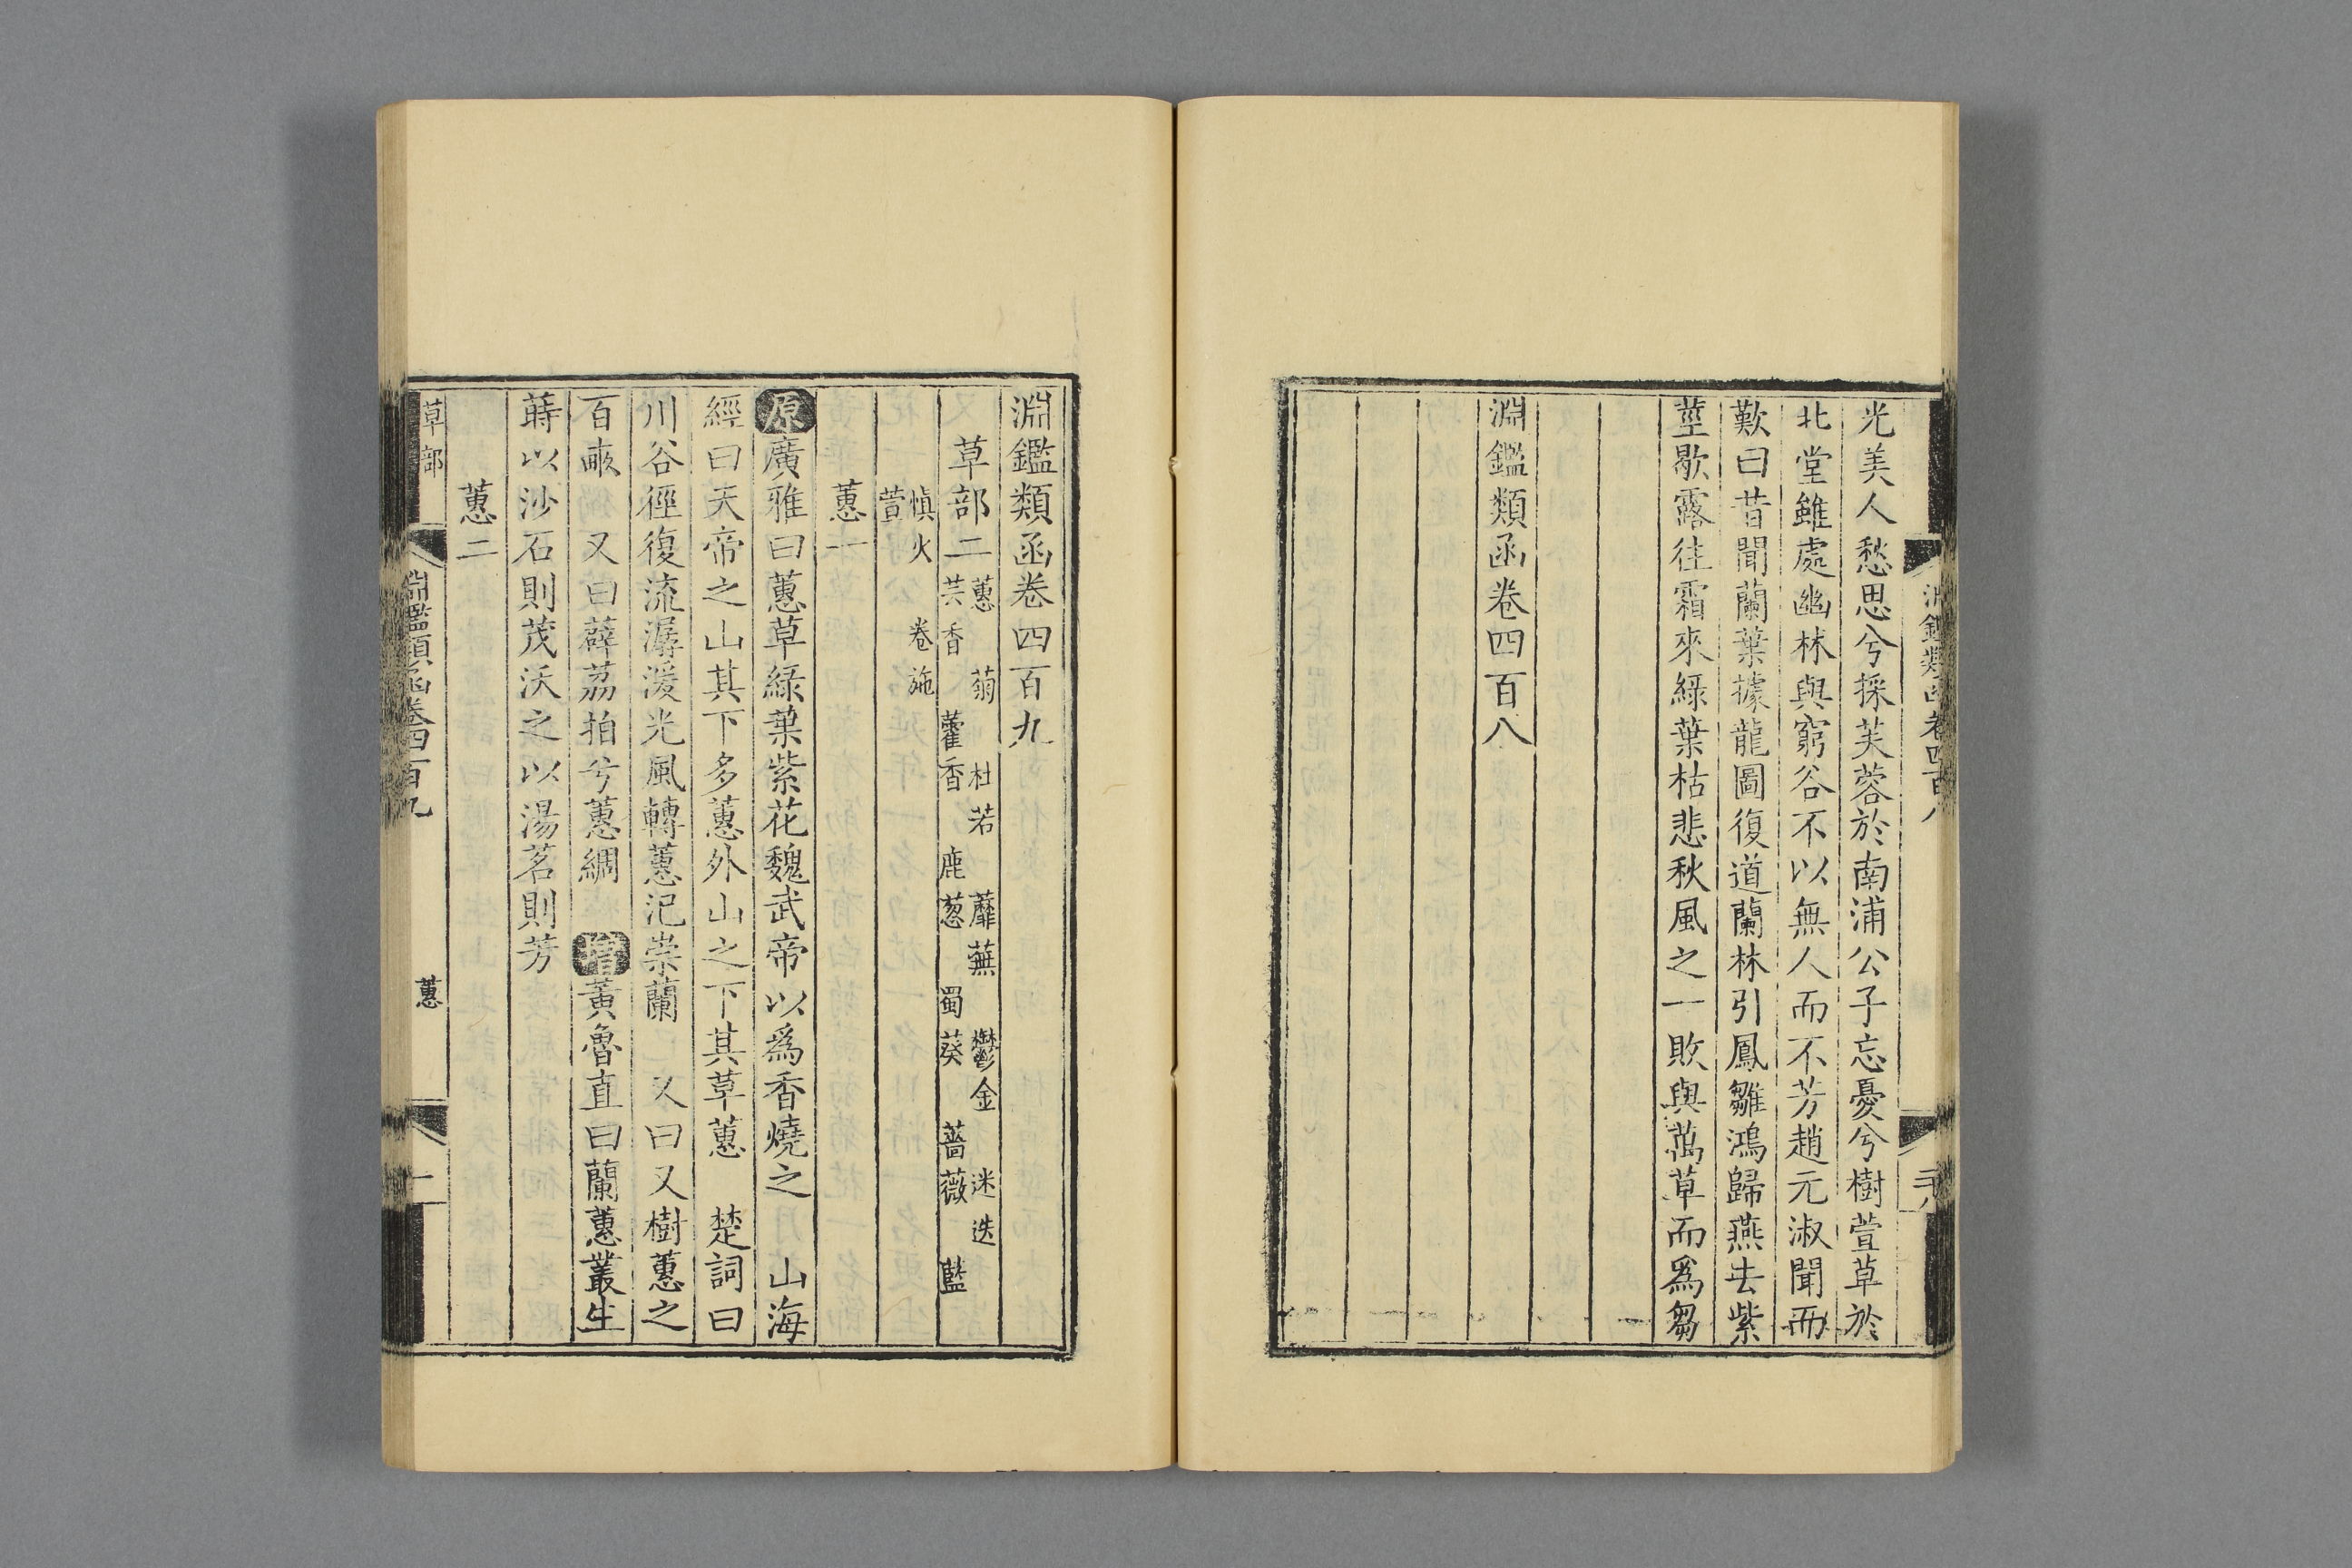 光美人愁思兮採芙蓉於南浦公子忘憂兮樹萱草於
北堂雖處幽林與窮谷不以無人而不芳趙元淑聞而
歎曰昔聞蘭葉據龍圖復道蘭林引鳳雛鴻歸燕去紫
莖歇露往霜來綠葉枯悲秋風之一敗與萬草而為芻
淵鑑類函卷四百八
淵鑑類函卷四百九
草部二 蕙 菊 杜若 蘼蕪 鬱金 迷迭
芸香 藿香 鹿葱 蜀葵 薔薇 藍
慎火 卷施
萱
蕙一
原廣雅曰蕙草綠葉紫花魏武帝以爲香燒之 山海
經曰天帝之山其下多蕙外山之下其草蕙 楚詞曰
川谷徑復流潺湲光風轉蕙汜崇蘭 又曰又樹蕙之
百畝 又曰薜荔拍兮蕙綢 增黃魯直曰蘭蕙叢生
蒔以沙石則茂沃之以湯茗則芳
蕙二
草部
淵鑑類函卷四百九
蕙
一